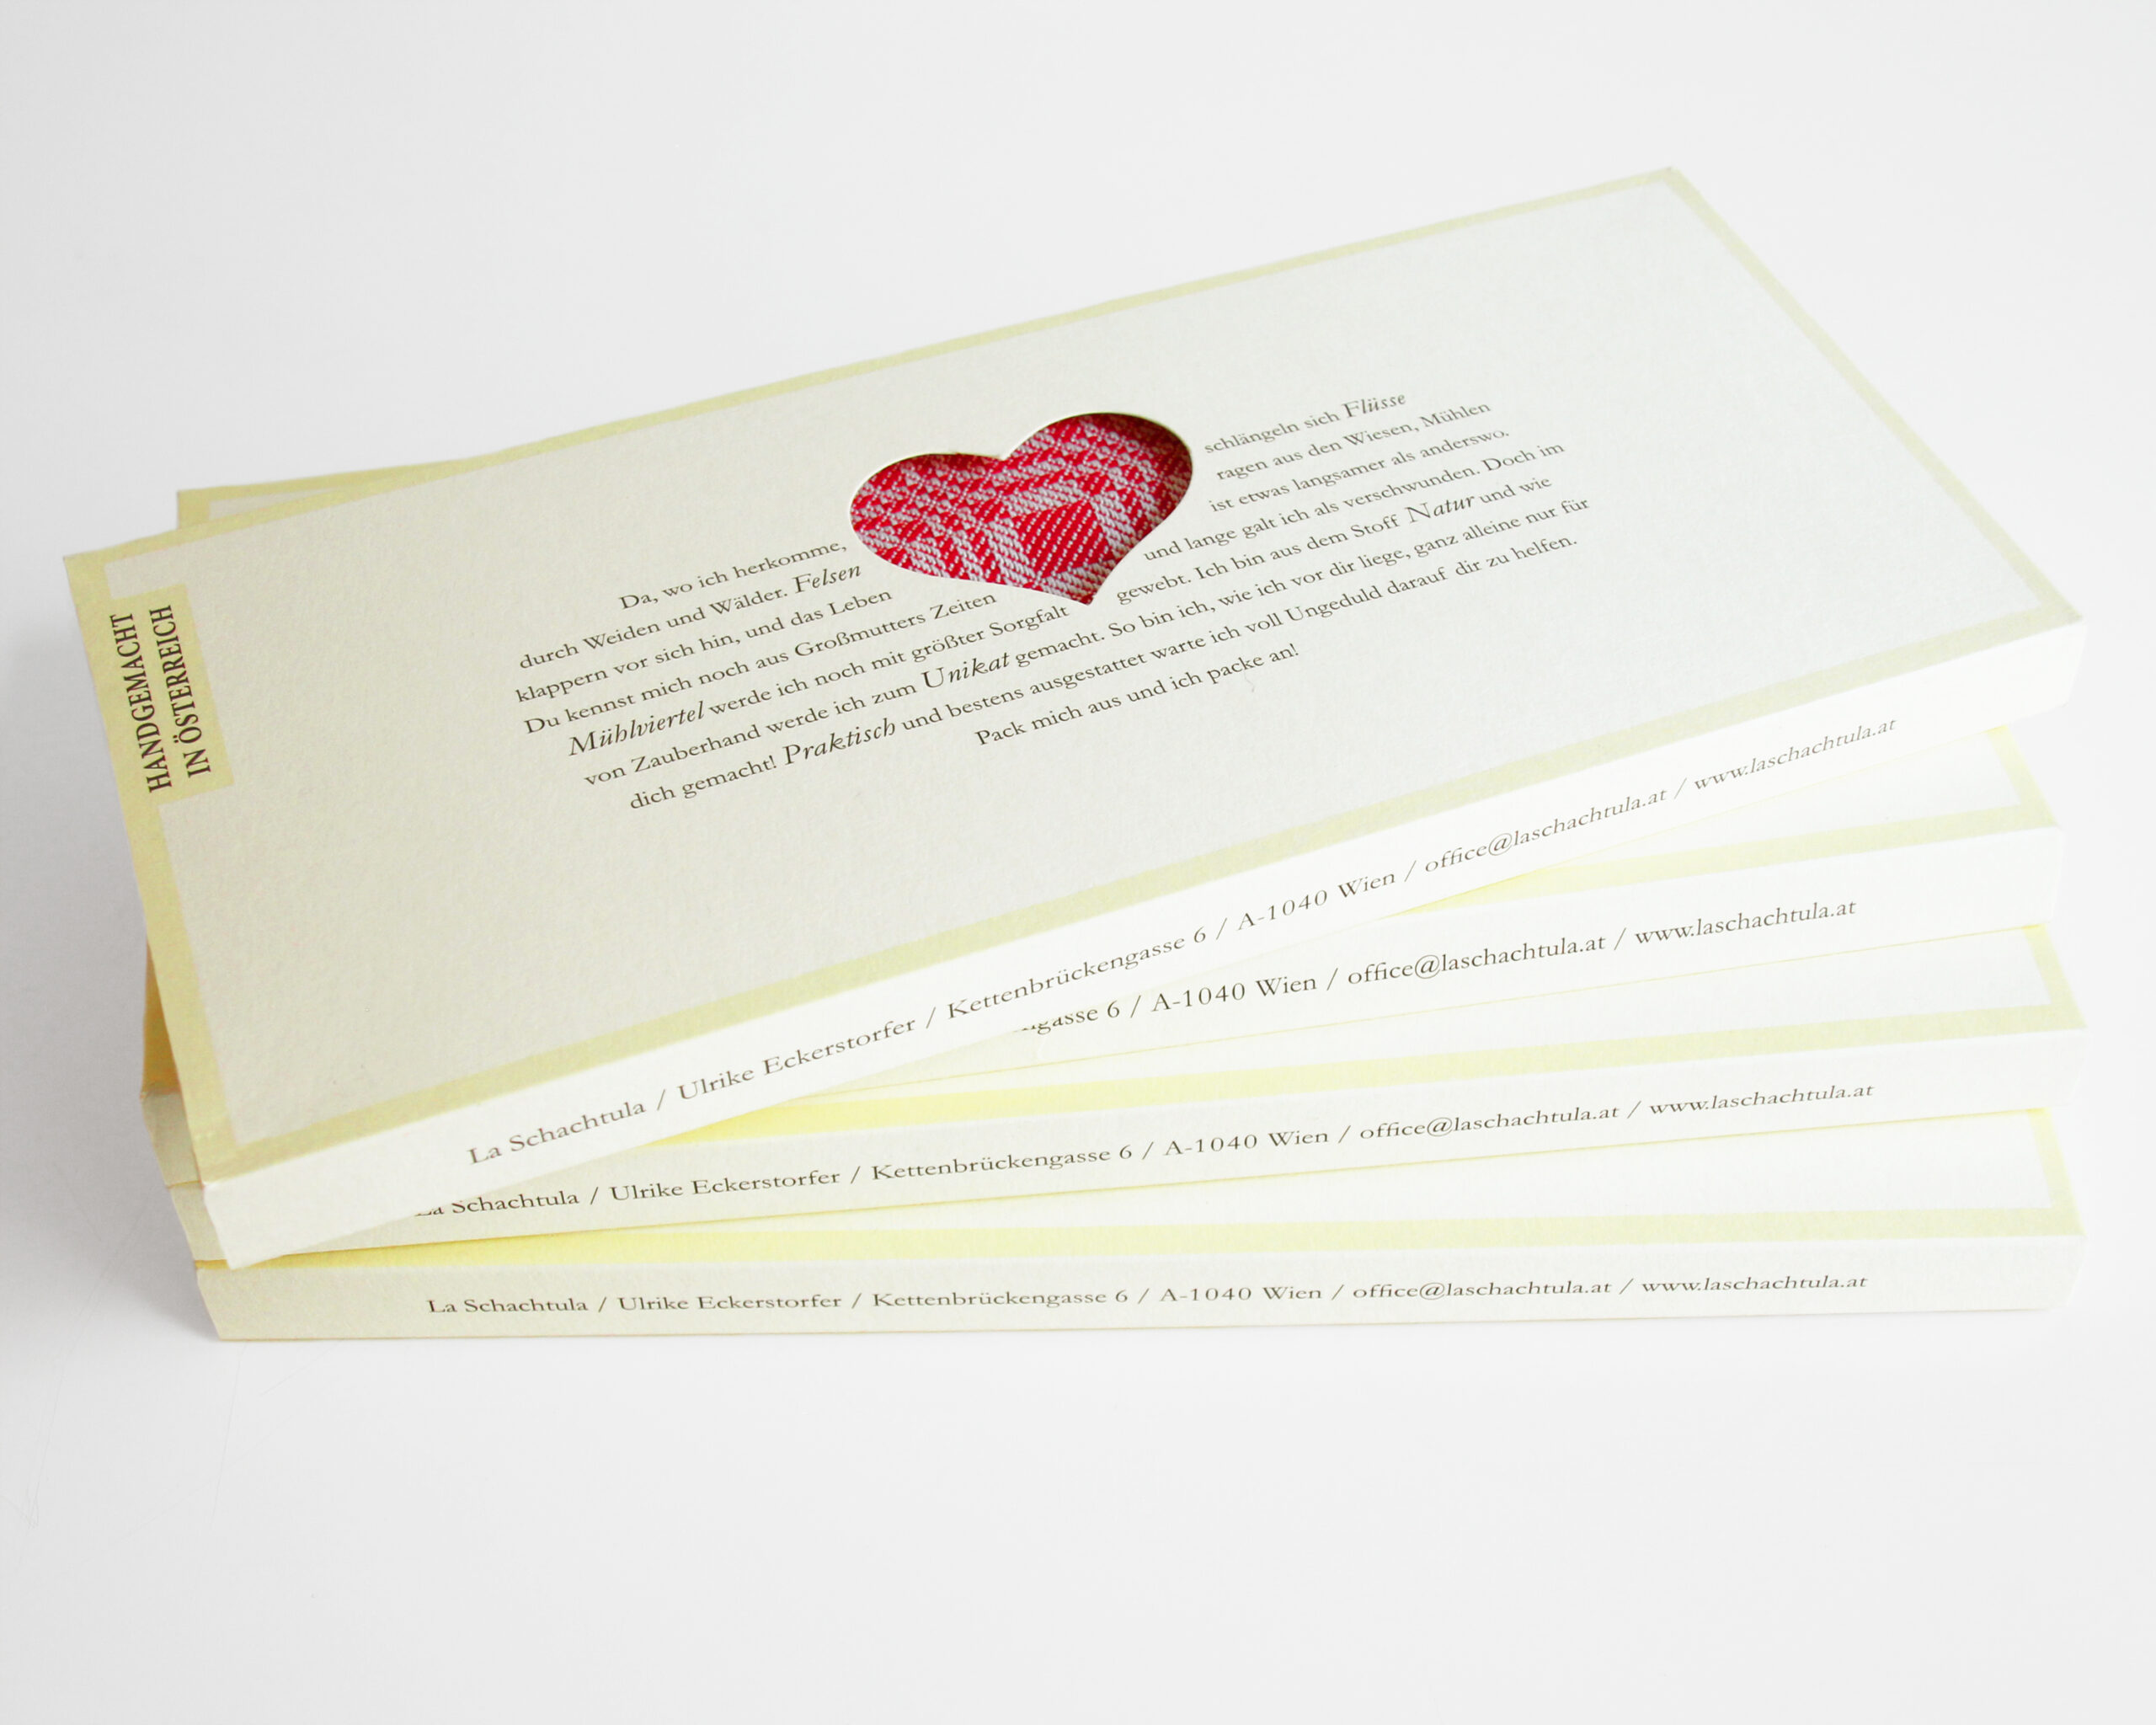 HANDGEMACHT
IN ÖSTERREICH
Da, wo ich herkomme, schlängeln sich Flüsse
durch Weiden und Wälder. Felsen ragen aus den Wiesen, Mühlen
klappern vor sich hin, und das Leben ist etwas langsamer als anderswo.
Du kennst mich noch aus Großmutters Zeiten und lange galt ich als verschwunden. Doch im
Mühlviertel werde ich noch mit größter Sorgfalt gewebt. Ich bin aus dem Stoff Natur und wie
von Zauberhand werde ich zum Unikat gemacht. So bin ich, wie ich vor dir liege, ganz alleine nur für
dich gemacht! Praktisch und bestens ausgestattet warte ich voll Ungeduld darauf dir zu helfen.
Pack mich aus und ich packe an!
La Schachtula / Ulrike Eckerstorfer / Kettenbrückengasse 6 / A-1040 Wien / office@laschachtula.at / www.laschachtula.at
gasse 6 / A-1040 Wien / office@laschachtula.at / www.laschachtula.at
La Schachtula / Ulrike Eckerstorfer / Kettenbrückengasse 6 / A-1040 Wien / office@laschachtula.at / www.laschachtula.at
La Schachtula / Ulrike Eckerstorfer / Kettenbrückengasse 6 / A-1040 Wien / office@laschachtula.at / www.laschachtula.at